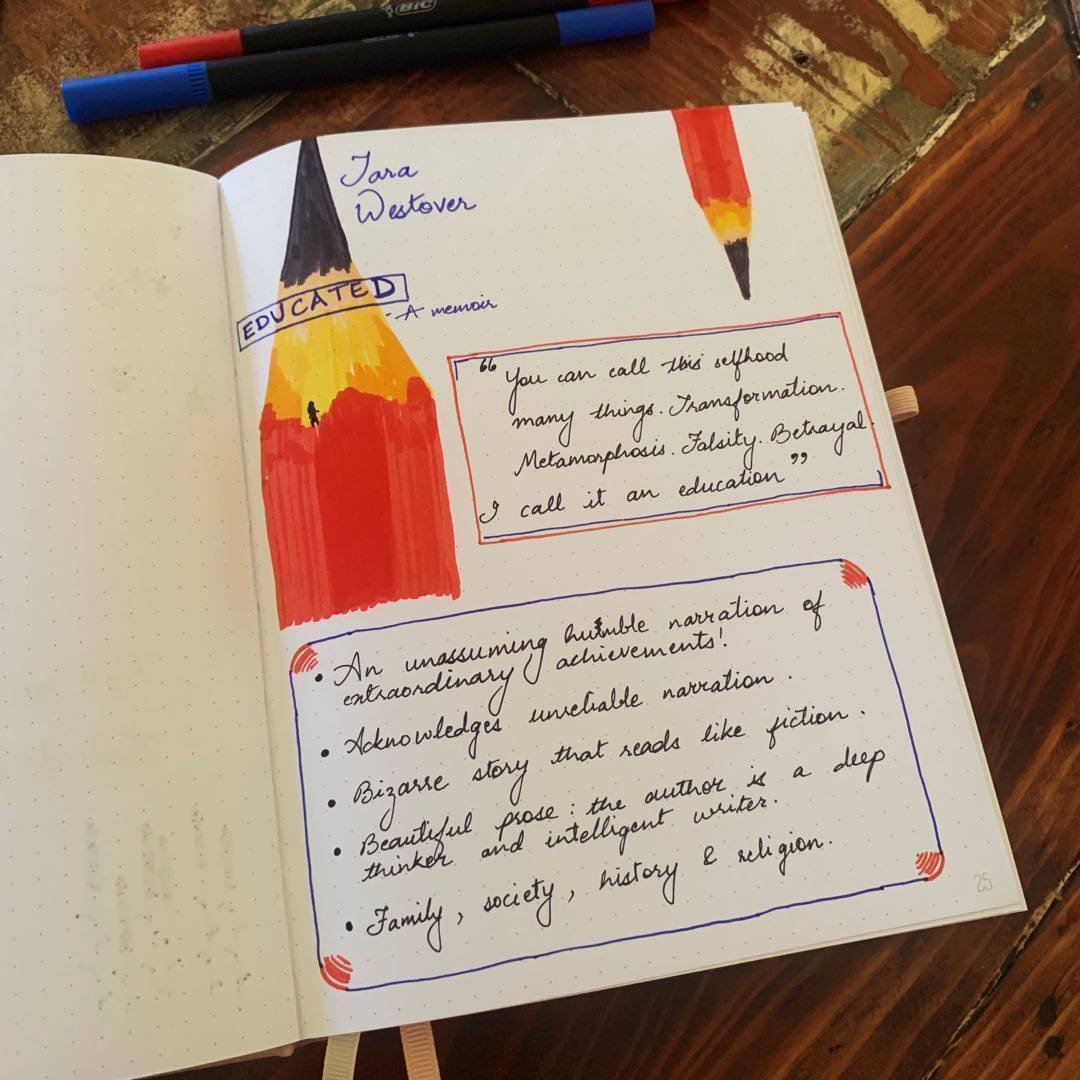 BIC
Tara
Westover
EDUCATED
- A memoir
“ You can call this selfhood
many things. Transformation.
Metamorphosis. Falsity. Betrayal.
I call it an education ”
• An unassuming humble narration of
extraordinary achievements!
• Acknowledges unreliable narration.
• Bizarre story that reads like fiction.
• Beautiful prose: the author is a deep
thinker and intelligent writer.
• Family, society, history & religion.
25